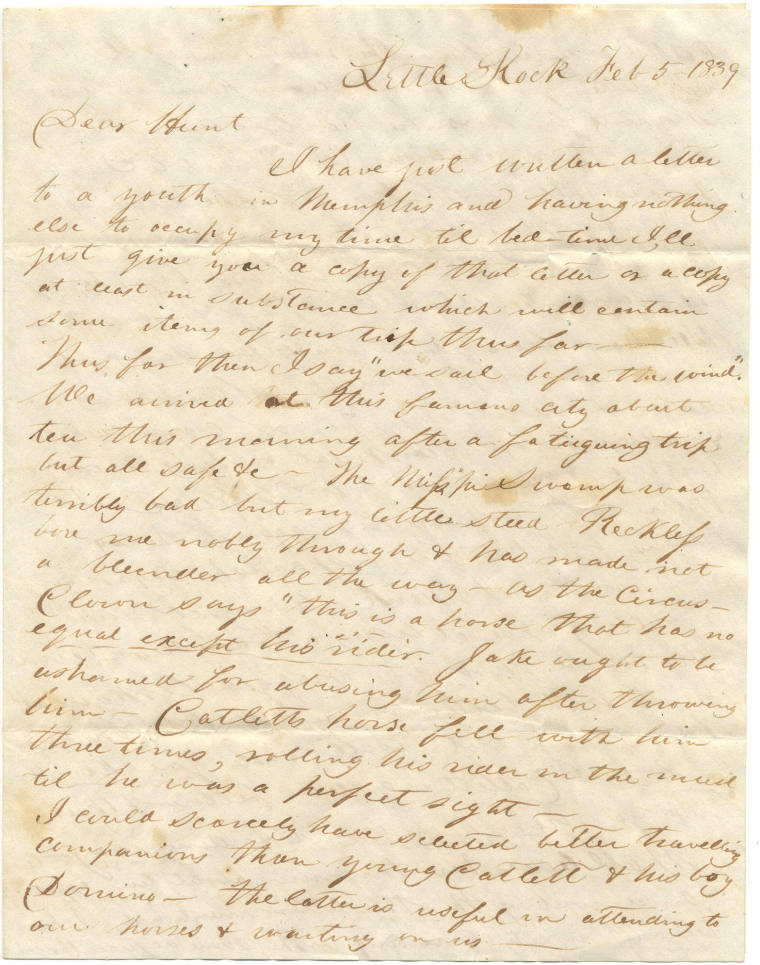 Little Rock Feb 5 - 1839
Dear Hunt
I have just written a letter
to a youth in Memphis and having nothing
else to occupy my time til bed-time I'll
just give you a copy of that letter or a copy
at least in substance which will contain
some items of our trip thus far —
Thus far then I say "we sail before the wind".
We arrived at this famous city about
ten this morning after a fatiguing trip
but all safe &c - The Missi Swamp was
terribly bad but my little steed Reckless
bore me nobly through & has made not
a blunder all the way - as the Circus-
Clown says "this is a horse that has no
equal except his rider". Jake ought to be
ashamed for abusing him after throwing
him - Catletts horse fell with him
three times, rolling his rider in the mud
til he was a perfect sight —
I could scarcely have selected better travelling
companions than young Catlett & his boy
Domino - the latter is useful in attending to
our horses & waiting on us —